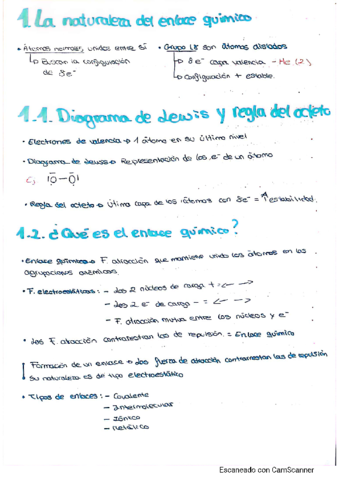 1. La naturaleza del enlace químico
• Átomos normales, unidos entre sí
↳ Buscan la configuración
de 8e⁻
• Grupo 18 son átomos aislados
↳ 8e⁻ capa valencia – He (2)
↳ Configuración + estable.
1.1. Diagrama de Lewis y regla del octeto
• Electrones de valencia → 1 átomo en su último nivel
• Diagrama de Lewis → Representación de los e⁻ de un átomo
• Regla del octeto → Última capa de los átomos con 8e⁻ = ↑ estabilidad.
1.2. ¿Qué es el enlace químico?
• Enlace químico → F. atracción que mantiene unido los átomos en las
agrupaciones atómicas.
• F. electroestáticas: – Los 2 núcleos de carga + ← →
– Los 2 e⁻ de carga – = ← →
– F. atracción mutua entre los núcleos y e⁻
• Los F. atracción contrarrestan las de repulsión. = Enlace químico
Formación de un enlace → Las fuerzas de atracción contrarrestan las de repulsión
Su naturaleza es de tipo electroestático
• Tipos de enlaces: – Covalente
– Intermolecular
– Iónico
– Metálico
Escaneado con CamScanner